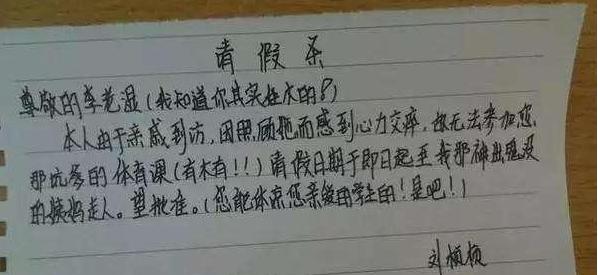 请假条
尊敬的李老湿(我知道你其实挺水的P)
本人由于亲戚到访，因照顾她而感到心力交瘁，故无法参加您
那坑爹的体育课(有木有!!)请假日期于即日起至我那神出鬼没
的姨妈走人。望批准。(您能体谅您亲爱的学生的!是吧!)
刘桢桢